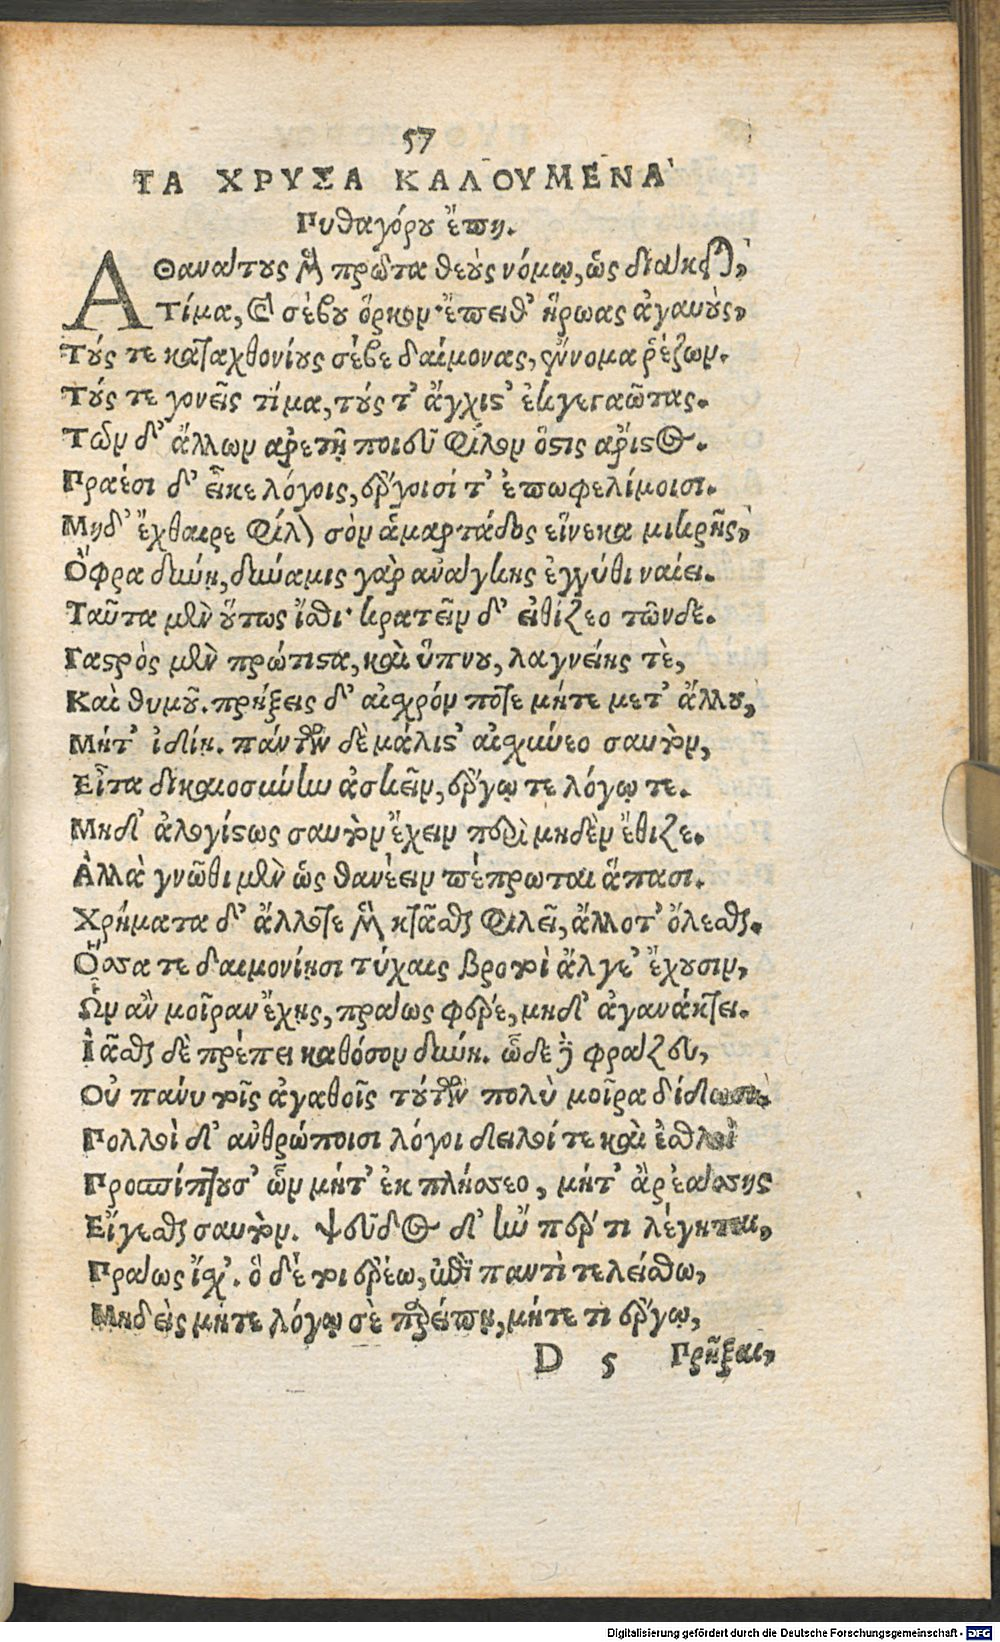 57
ΤΑ ΧΡΥΣΑ ΚΑΛΟΥΜΕΝΑ
Πυθαγόρου ἔπη.
ΑΘανάτους μὲν πρῶτα θεοὺς νόμῳ, ὡς διάκειται,
Τίμα, καὶ σέβου ὅρκον· ἔπειθ' ἥρωας ἀγαυούς,
Τούς τε καταχθονίους σέβε δαίμονας, ἔννομα ῥέζων.
Τούς τε γονεῖς τίμα, τούς τ' ἄγχιστ' ἐκγεγαῶτας.
Τῶν δ' ἄλλων ἀρετῇ ποιεῦ φίλον ὅστις ἄριστος.
Πραέσι δ' εἶκε λόγοις, ἔργοισί τ' ἐπωφελίμοισι.
Μηδ' ἔχθαιρε φίλον σὸν ἁμαρτάδος εἵνεκα μικρῆς,
Ὄφρα δύνῃ, δύναμις γὰρ ἀνάγκης ἐγγύθι ναίει.
Ταῦτα μὲν οὕτως ἴσθι· κρατεῖν δ' εἰθίζεο τῶνδε.
Γαστρὸς μὲν πρώτιστα, καὶ ὕπνου, λαγνείης τὲ,
Καὶ θυμοῦ. πρήξεις δ' αἰσχρόν ποτε μήτε μετ' ἄλλου,
Μήτ' ἰδίῃ. πάντων δὲ μάλιστ' αἰσχύνεο σαυτὸν,
Εἶτα δικαιοσύνην ἀσκεῖν, ἔργῳ τε λόγῳ τε.
Μηδ' ἀλογίστως σαυτὸν ἔχειν περὶ μηδὲν ἔθιζε.
Ἀλλὰ γνῶθι μὲν ὡς θανέειν πέπρωται ἅπασι.
Χρήματα δ' ἄλλοτε μὲν κτᾶσθαι φιλεῖ, ἄλλοτ' ὄλεσθαι.
Ὅσσα τε δαιμονίῃσι τύχαις βροτοὶ ἄλγε' ἔχουσιν,
Ὧν ἂν μοῖραν ἔχῃς, πράως φέρε, μηδ' ἀγανάκτει.
Ἰᾶσθαι δὲ πρέπει καθόσον δύνῃ. ὧδε δὲ φράζευ,
Οὐ πάνυ τοῖς ἀγαθοῖς τούτων πολὺ μοῖρα δίδωσι.
Πολλοὶ δ' ἀνθρώποισι λόγοι δειλοί τε καὶ ἐσθλοὶ
Προσπίπτουσ' ὧν μήτ' ἐκπλήσσεο, μήτ' ἂρ ἐάσσῃς
Εἴγεσθαι σαυτὸν. ψεῦδος δ' ἢν πέρ τι λέγηται,
Πράως ἴσχ'. ὃ δέ τοι ἐρέω, ἐπὶ παντὶ τελείσθω,
Μηδεὶς μήτε λόγῳ σὲ παρείπῃ, μήτε τι ἔργῳ,
D 5 Πρῆξαι,